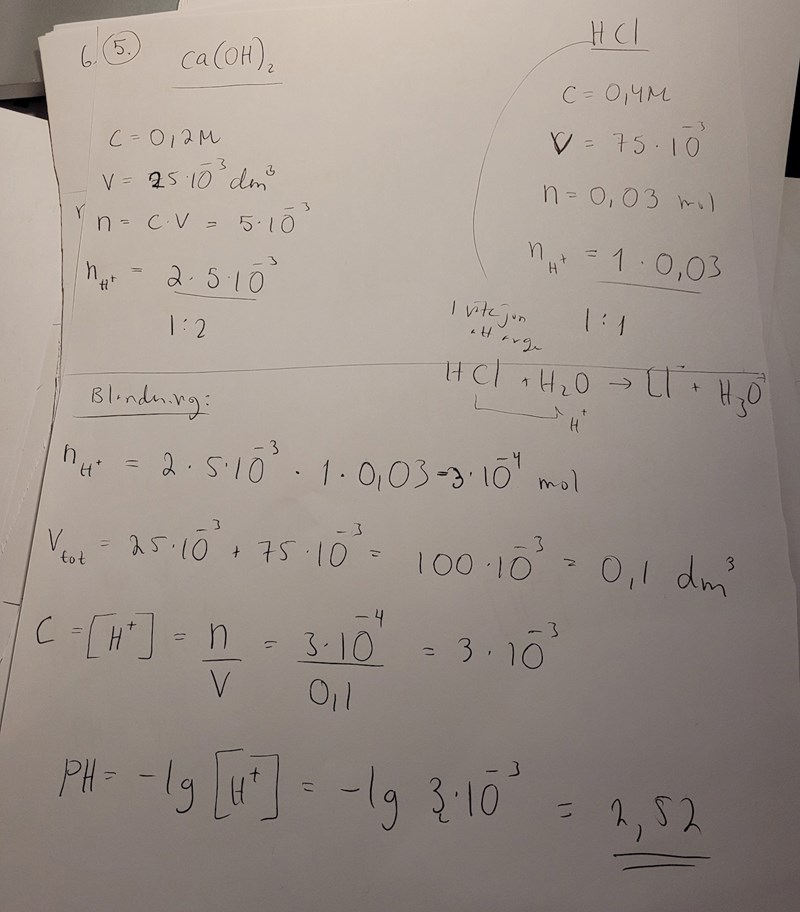 6. 5.
Ca(OH)₂
C = 0,2M
V = 25·10⁻³ dm³
n = C·V = 5·10⁻³
n_H⁺ = 2·5·10⁻³
1:2
HCl
C = 0,4M
V = 75·10⁻³
n = 0,03 mol
n_H⁺ = 1·0,03
1:1
1 vätejon
att avge
HCl + H₂O → Cl⁻ + H₃O⁺
H⁺
Blandning:
n_H⁺ = 2·5·10⁻³ · 1·0,03 = 3·10⁻⁴ mol
V_tot = 25·10⁻³ + 75·10⁻³ = 100·10⁻³ = 0,1 dm³
C = [H⁺] = n/V = 3·10⁻⁴/0,1 = 3·10⁻³
PH = -lg [H⁺] = -lg 3·10⁻³ = 2,52